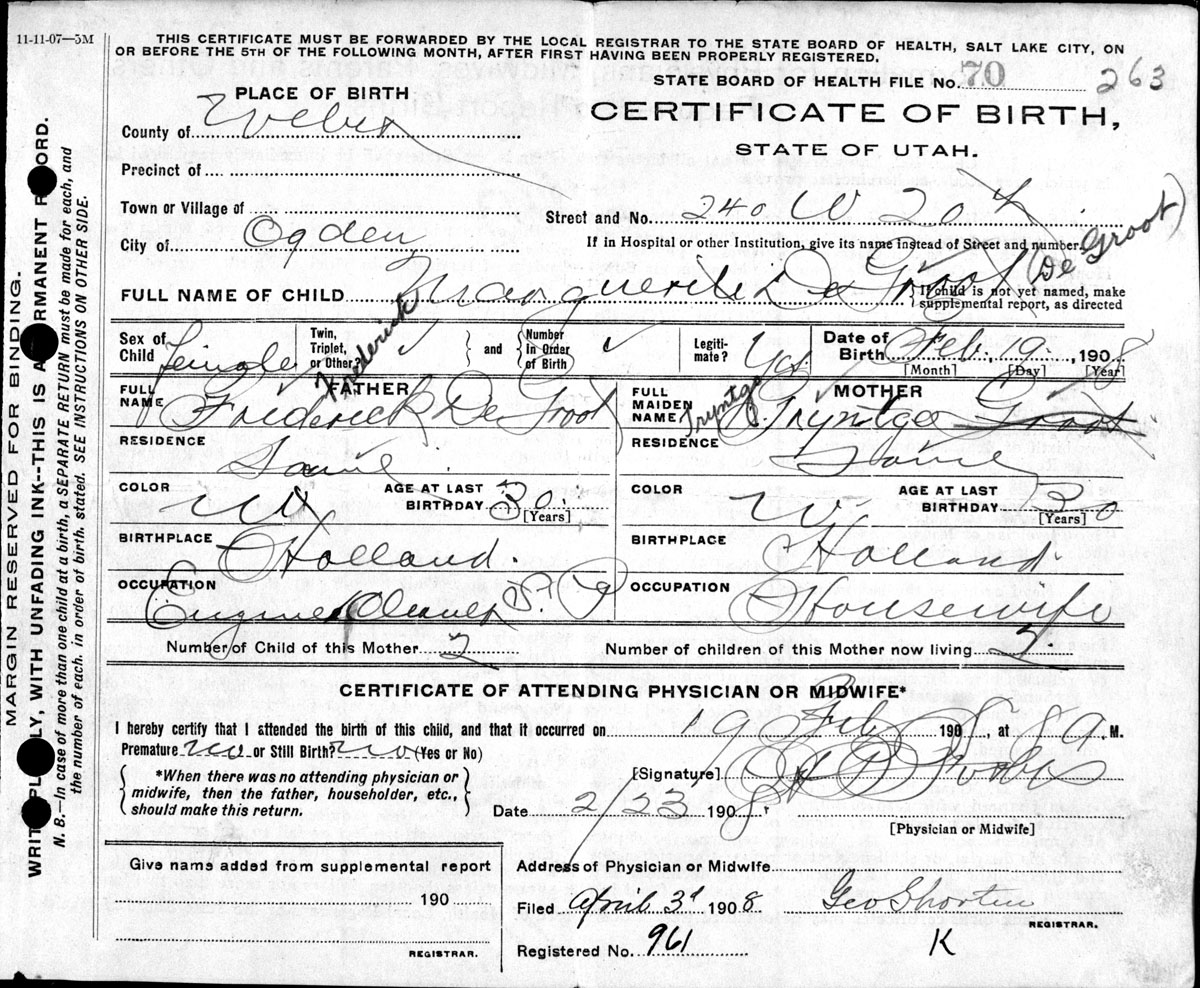 11-11-07—5M
THIS CERTIFICATE MUST BE FORWARDED BY THE LOCAL REGISTRAR TO THE STATE BOARD OF HEALTH, SALT LAKE CITY, ON
OR BEFORE THE 5TH OF THE FOLLOWING MONTH, AFTER FIRST HAVING BEEN PROPERLY REGISTERED.
STATE BOARD OF HEALTH FILE No. 70 263
PLACE OF BIRTH
CERTIFICATE OF BIRTH,
STATE OF UTAH.
County of Weber
Precinct of
Town or Village of
Street and No. 240 W 20th
City of Ogden
If in Hospital or other Institution, give its name instead of Street and number.
FULL NAME OF CHILD Marguerite De Groot (De Groot)
{If child is not yet named, make supplemental report, as directed
Sex of Child Female
Twin, Triplet, or Other? ✓ and {Number in Order of Birth ✓
Legitimate? Yes
Date of Birth Feb. 19, 1908
[Month] [Day] [Year]
FATHER
FULL NAME Frederick De Groot
Frederick
MOTHER
FULL MAIDEN NAME Tryntge Groot
Tryntge
RESIDENCE Same
RESIDENCE Same
COLOR W AGE AT LAST BIRTHDAY 30 [Years]
COLOR W. AGE AT LAST BIRTHDAY 30 [Years]
BIRTHPLACE Holland.
BIRTHPLACE Holland.
OCCUPATION Engine
OCCUPATION Housewife
Number of Child of this Mother 2 Number of children of this Mother now living 2
CERTIFICATE OF ATTENDING PHYSICIAN OR MIDWIFE*
I hereby certify that I attended the birth of this child, and that it occurred on 19 Feb 1908, at 8 a. M.
Premature no or Still Birth? no (Yes or No)
{*When there was no attending physician or midwife, then the father, householder, etc., should make this return.}
[Signature]
Date 2/23 1908
[Physician or Midwife]
Give name added from supplemental report
190
REGISTRAR.
Address of Physician or Midwife
Filed April 3d 1908
Geo Shorten
REGISTRAR.
Registered No. 961
K
MARGIN RESERVED FOR BINDING.
WRIT PL LY, WITH UNFADING INK--THIS IS A RMANENT R ORD.
N. B.—In case of more than one child at a birth, a SEPARATE RETURN must be made for each, and
the number of each, in order of birth, stated. SEE INSTRUCTIONS ON OTHER SIDE.